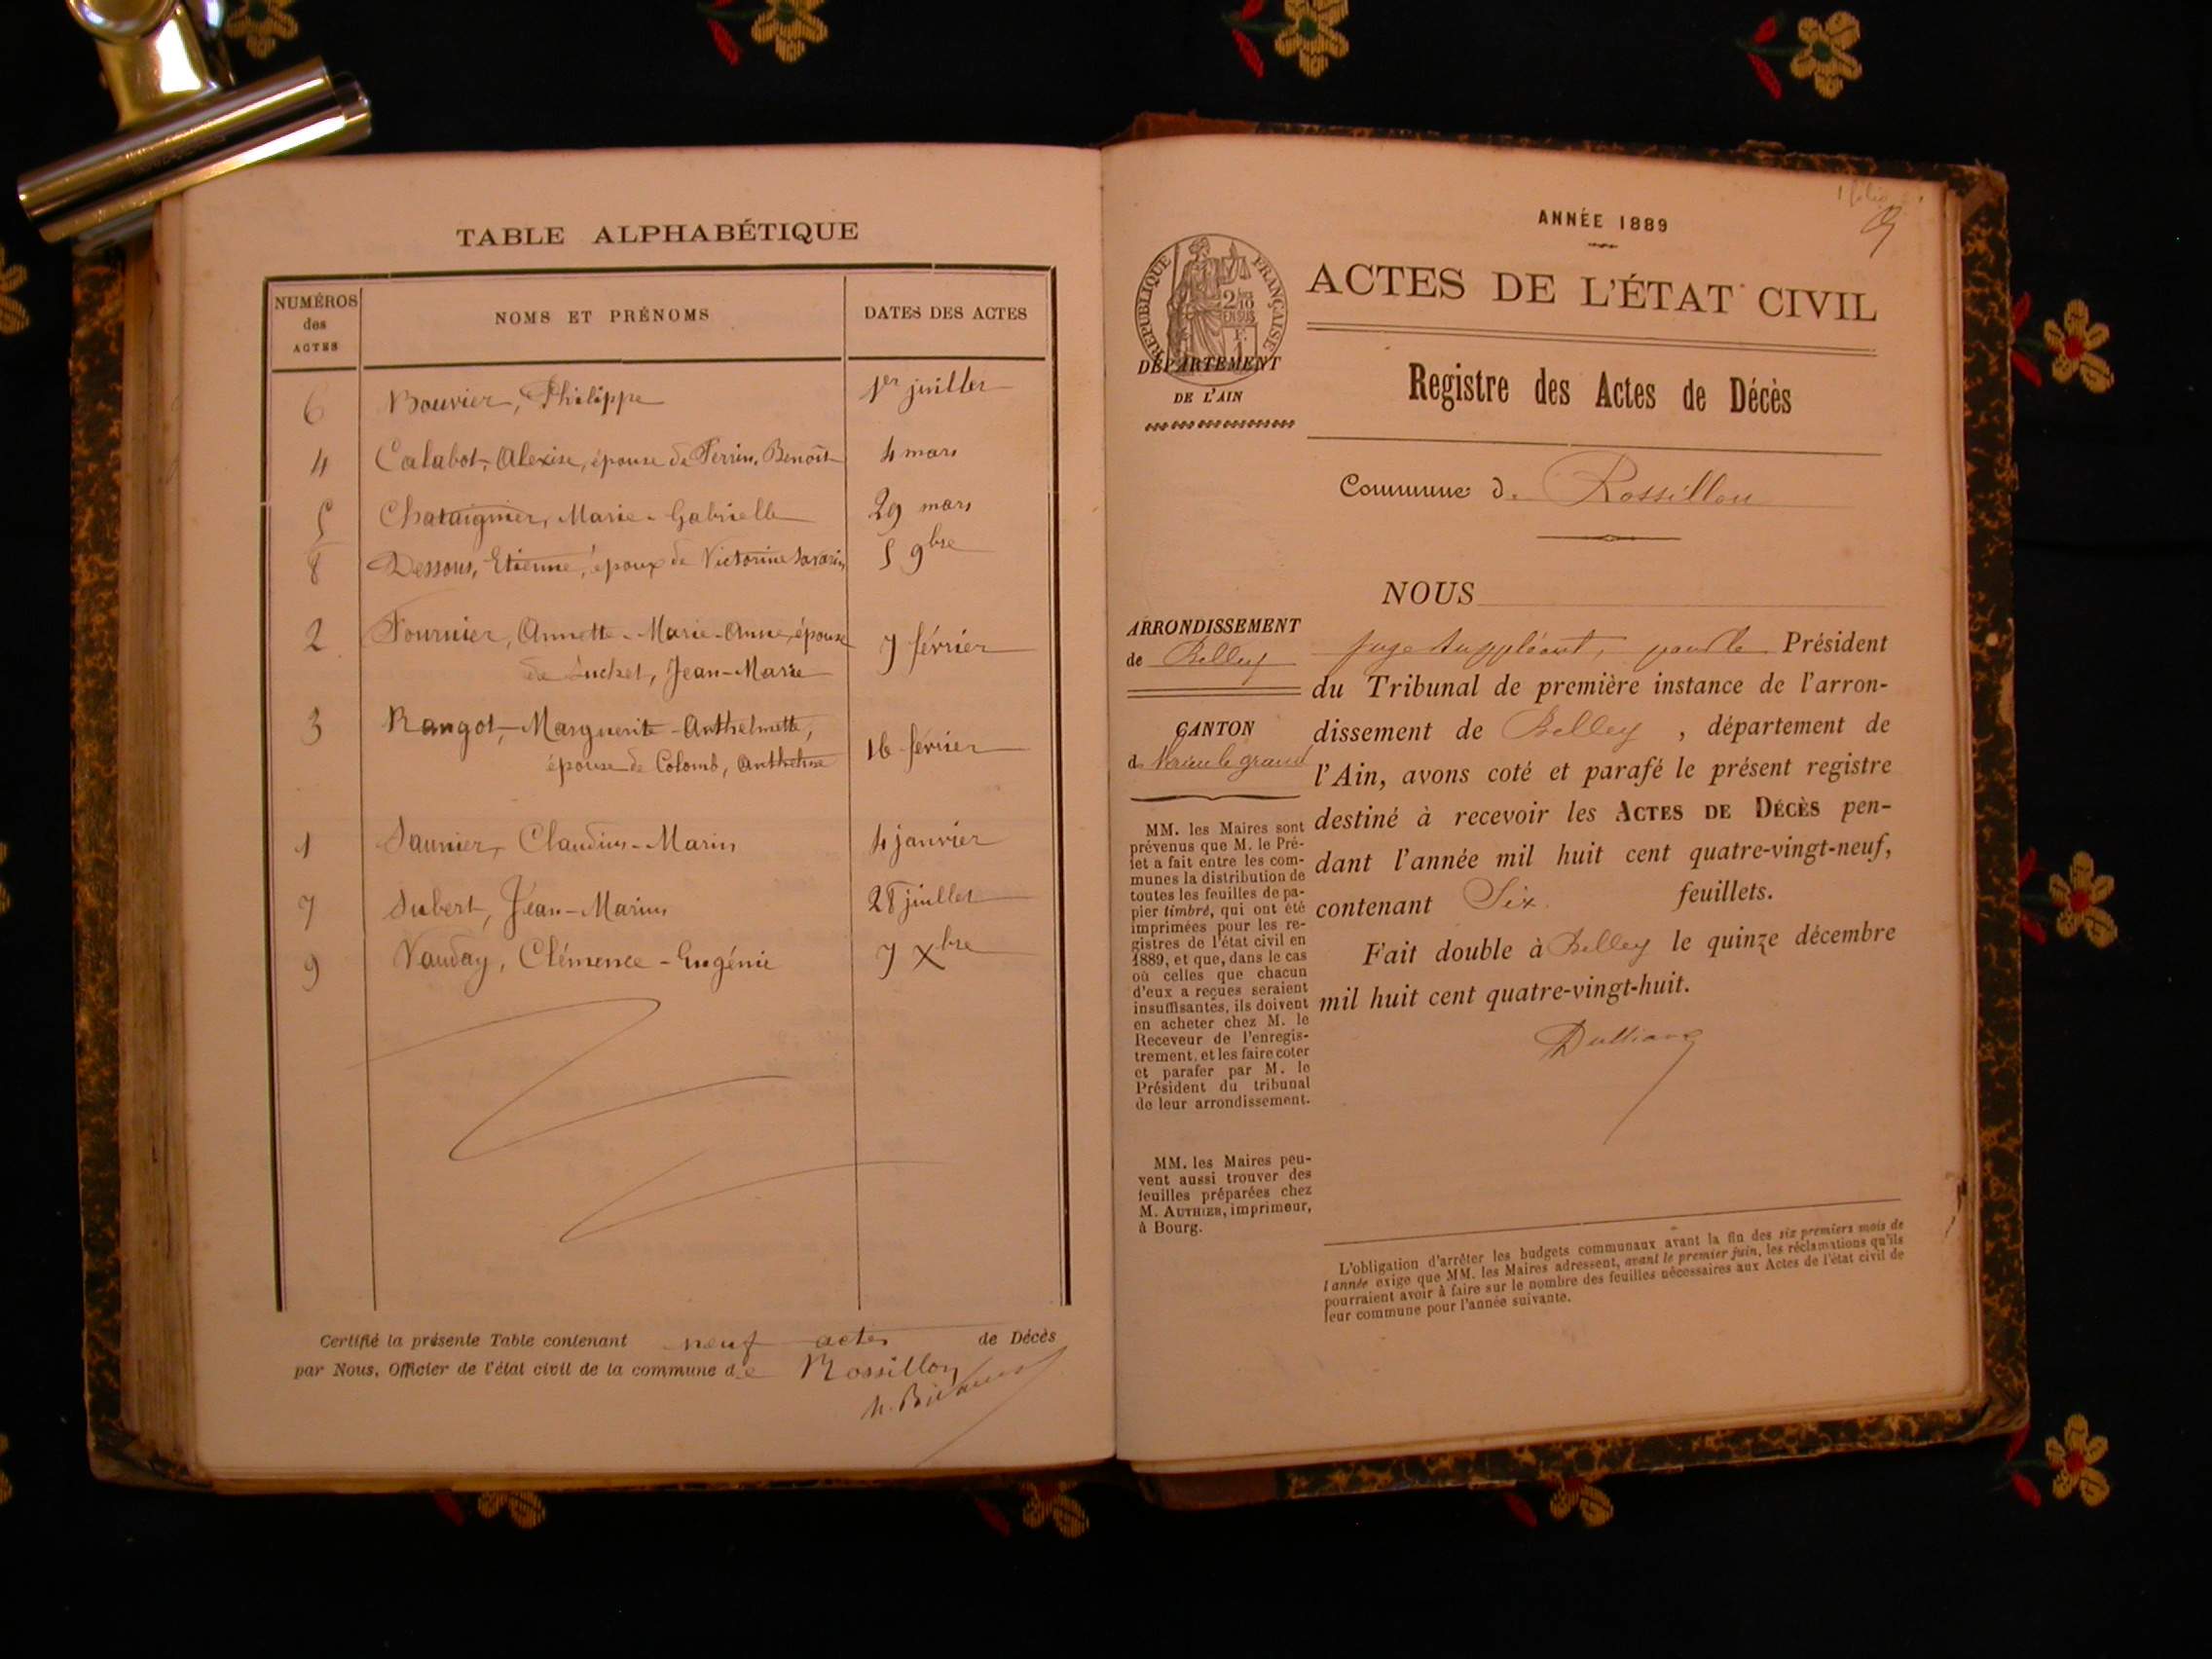 TABLE ALPHABÉTIQUE
NUMÉROS
des
ACTES
NOMS ET PRÉNOMS
DATES DES ACTES
6 Bouvier, Philippe 1er juillet
4 Calabot, Alexise, épouse de Perrin, Benoît 4 mars
5 Chataignier, Marie-Gabrielle 29 mars
8 Dessous, Etienne, époux de Victorine Savarin 5 9bre
2 Fournier, Annette-Marie-Anne, épouse
de Luchet, Jean-Marie 7 février
3 Rangot, Marguerite-Anthelmette,
épouse de Colomb, Anthelme 16 février
1 Saunier, Claudius-Marin 4 janvier
7 Subert, Jean-Marius 28 juillet
9 Vauday, Clémence-Eugénie 7 Xbre
Certifié la présente Table contenant neuf actes de Décès
par Nous, Officier de l'état civil de la commune de Rossillon
ANNÉE 1889
ACTES DE L'ÉTAT CIVIL
RÉPUBLIQUE FRANÇAISE
2 10
EN SUS
DÉPARTEMENT
DE L'AIN
Registre des Actes de Décès
Commune de Rossillon
NOUS
ARRONDISSEMENT
de Belley
CANTON
de Virieu le grand
juge suppléant, pour le Président
du Tribunal de première instance de l'arron-
dissement de Belley, département de
l'Ain, avons coté et parafé le présent registre
destiné à recevoir les ACTES DE DÉCÈS pen-
dant l'année mil huit cent quatre-vingt-neuf,
contenant Six feuillets.
Fait double à Belley le quinze décembre
mil huit cent quatre-vingt-huit.
MM. les Maires sont
prévenus que M. le Pré-
fet a fait entre les com-
munes la distribution de
toutes les feuilles de pa-
pier timbré, qui ont été
imprimées pour les re-
gistres de l'état civil en
1889, et que, dans le cas
où celles que chacun
d'eux a reçues seraient
insuffisantes, ils doivent
en acheter chez M. le
Receveur de l'enregis-
trement, et les faire coter
et parafer par M. le
Président du tribunal
de leur arrondissement.
MM. les Maires peu-
vent aussi trouver des
feuilles préparées chez
M. AUTHIER, imprimeur,
à Bourg.
L'obligation d'arrêter les budgets communaux avant la fin des six premiers mois de
l'année exige que MM. les Maires adressent, avant le premier juin, les réclamations qu'ils
pourraient avoir à faire sur le nombre des feuilles nécessaires aux Actes de l'état civil de
leur commune pour l'année suivante.